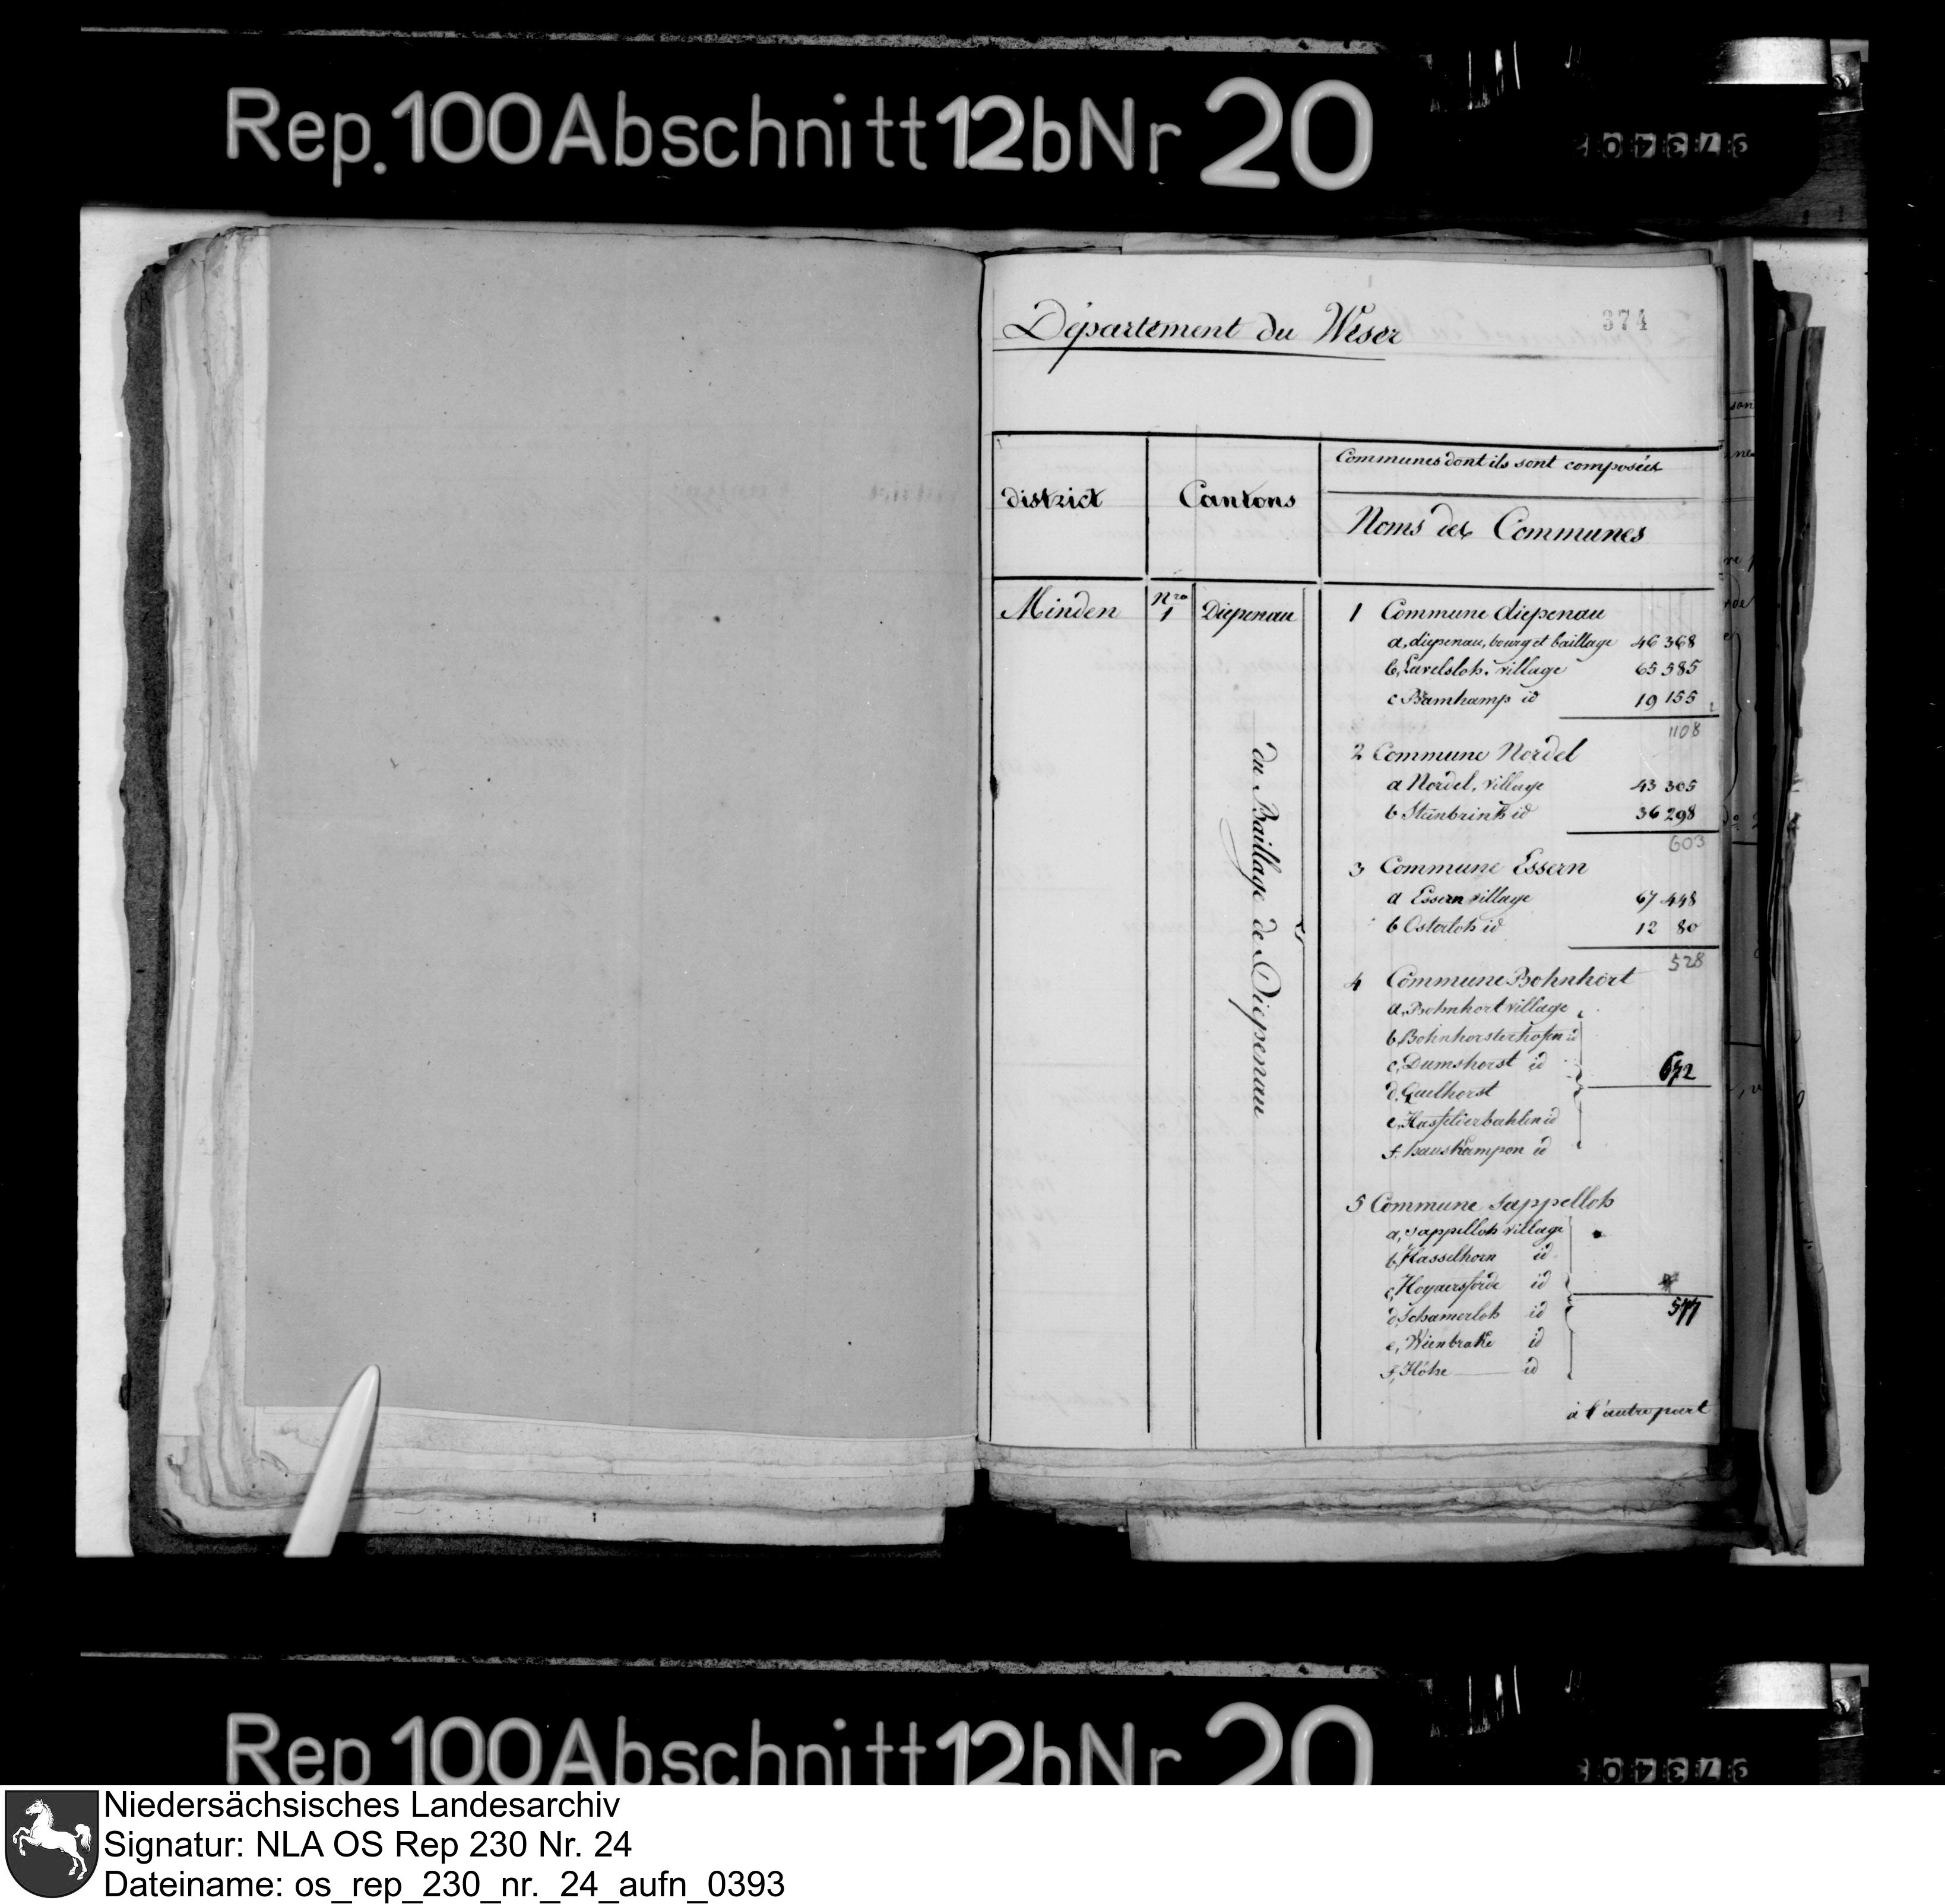 Rep. 100 Abschnitt 12b Nr 20
Département du Weser
374
district
Cantons
Communes dont ils sont composées
Noms des Communes
Minden
Nro 1
Diepenau
du Baillage de Diepenau
1 Commune diepenau
a, diepenau, bourg et baillage 46 368
b, Lavelsloh. village 65 585
c Bramkamp id 19 155
1108
2 Commune Nordel
a Nordel, village 43 305
b Steinbrink id 36 298
603
3 Commune Essern
a Essern village 67 448
b Osterloh id 12 80
528
4 Commune Bohnhort
a, Bohnhort village
b, Bohnhorsterhofen id
c, Dumshorst id 672
d. Quelhorst
e, Hasselierbahlen id
f. id
5 Commune Sappelloh
a, Sappelloh village
b, Hasselhorn id
c, Hoyaersforde id
577
d, Schamerloh id
e, Wienbrake id
f, Höhe id
à l'autre part
Rep 100 Abschnitt 12b Nr 20
Niedersächsisches Landesarchiv
Signatur: NLA OS Rep 230 Nr. 24
Dateiname: os_rep_230_nr._24_aufn_0393